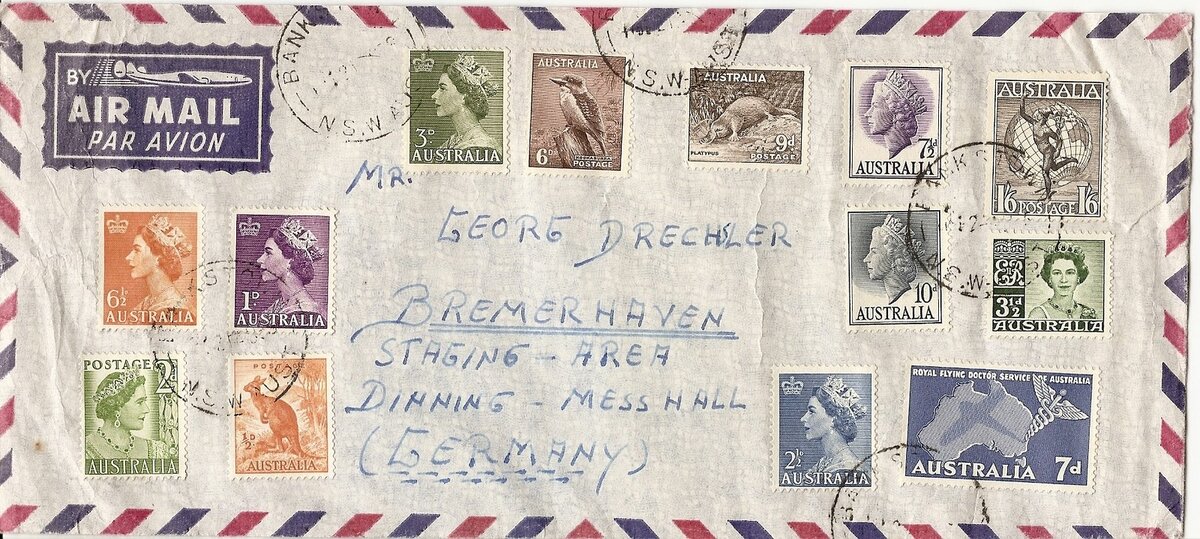 BY
AIR MAIL
PAR AVION
N.S.W. AUST
3D
AUSTRALIA
AUSTRALIA
6D
POSTAGE
N.S.W-AUST
AUSTRALIA
PLATYPUS
9d
POSTAGE
7½d
AUSTRALIA
AUSTRALIA
1/6 POSTAGE 1/6
MR.
GEORG DRECHSLER
BREMERHAVEN
STAGING - AREA
DINNING - MESS HALL
(GERMANY)
6½D
AUSTRALIA
1D
AUSTRALIA
10d
AUSTRALIA
3½d
AUSTRALIA
POSTAGE 2d
AUSTRALIA
POSTAGE
½d
AUSTRALIA
N.S.W-AUST
2½D
AUSTRALIA
ROYAL FLYING DOCTOR SERVICE OF AUSTRALIA
AUSTRALIA 7d